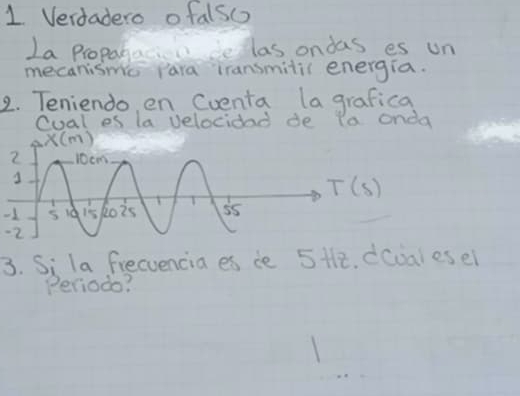 1. Verdadero o falso
La Propagación de las ondas es un
mecanismo Para Transmitir energía.
2. Teniendo en Cuenta la grafica
Cual es la velocidad de la onda
X(m)
2 10cm
1
T(s)
-1 5 10 15 20 25 55
-2
3. Si la frecuencia es de 5Hz. ¿Cuál es el
Periodo?